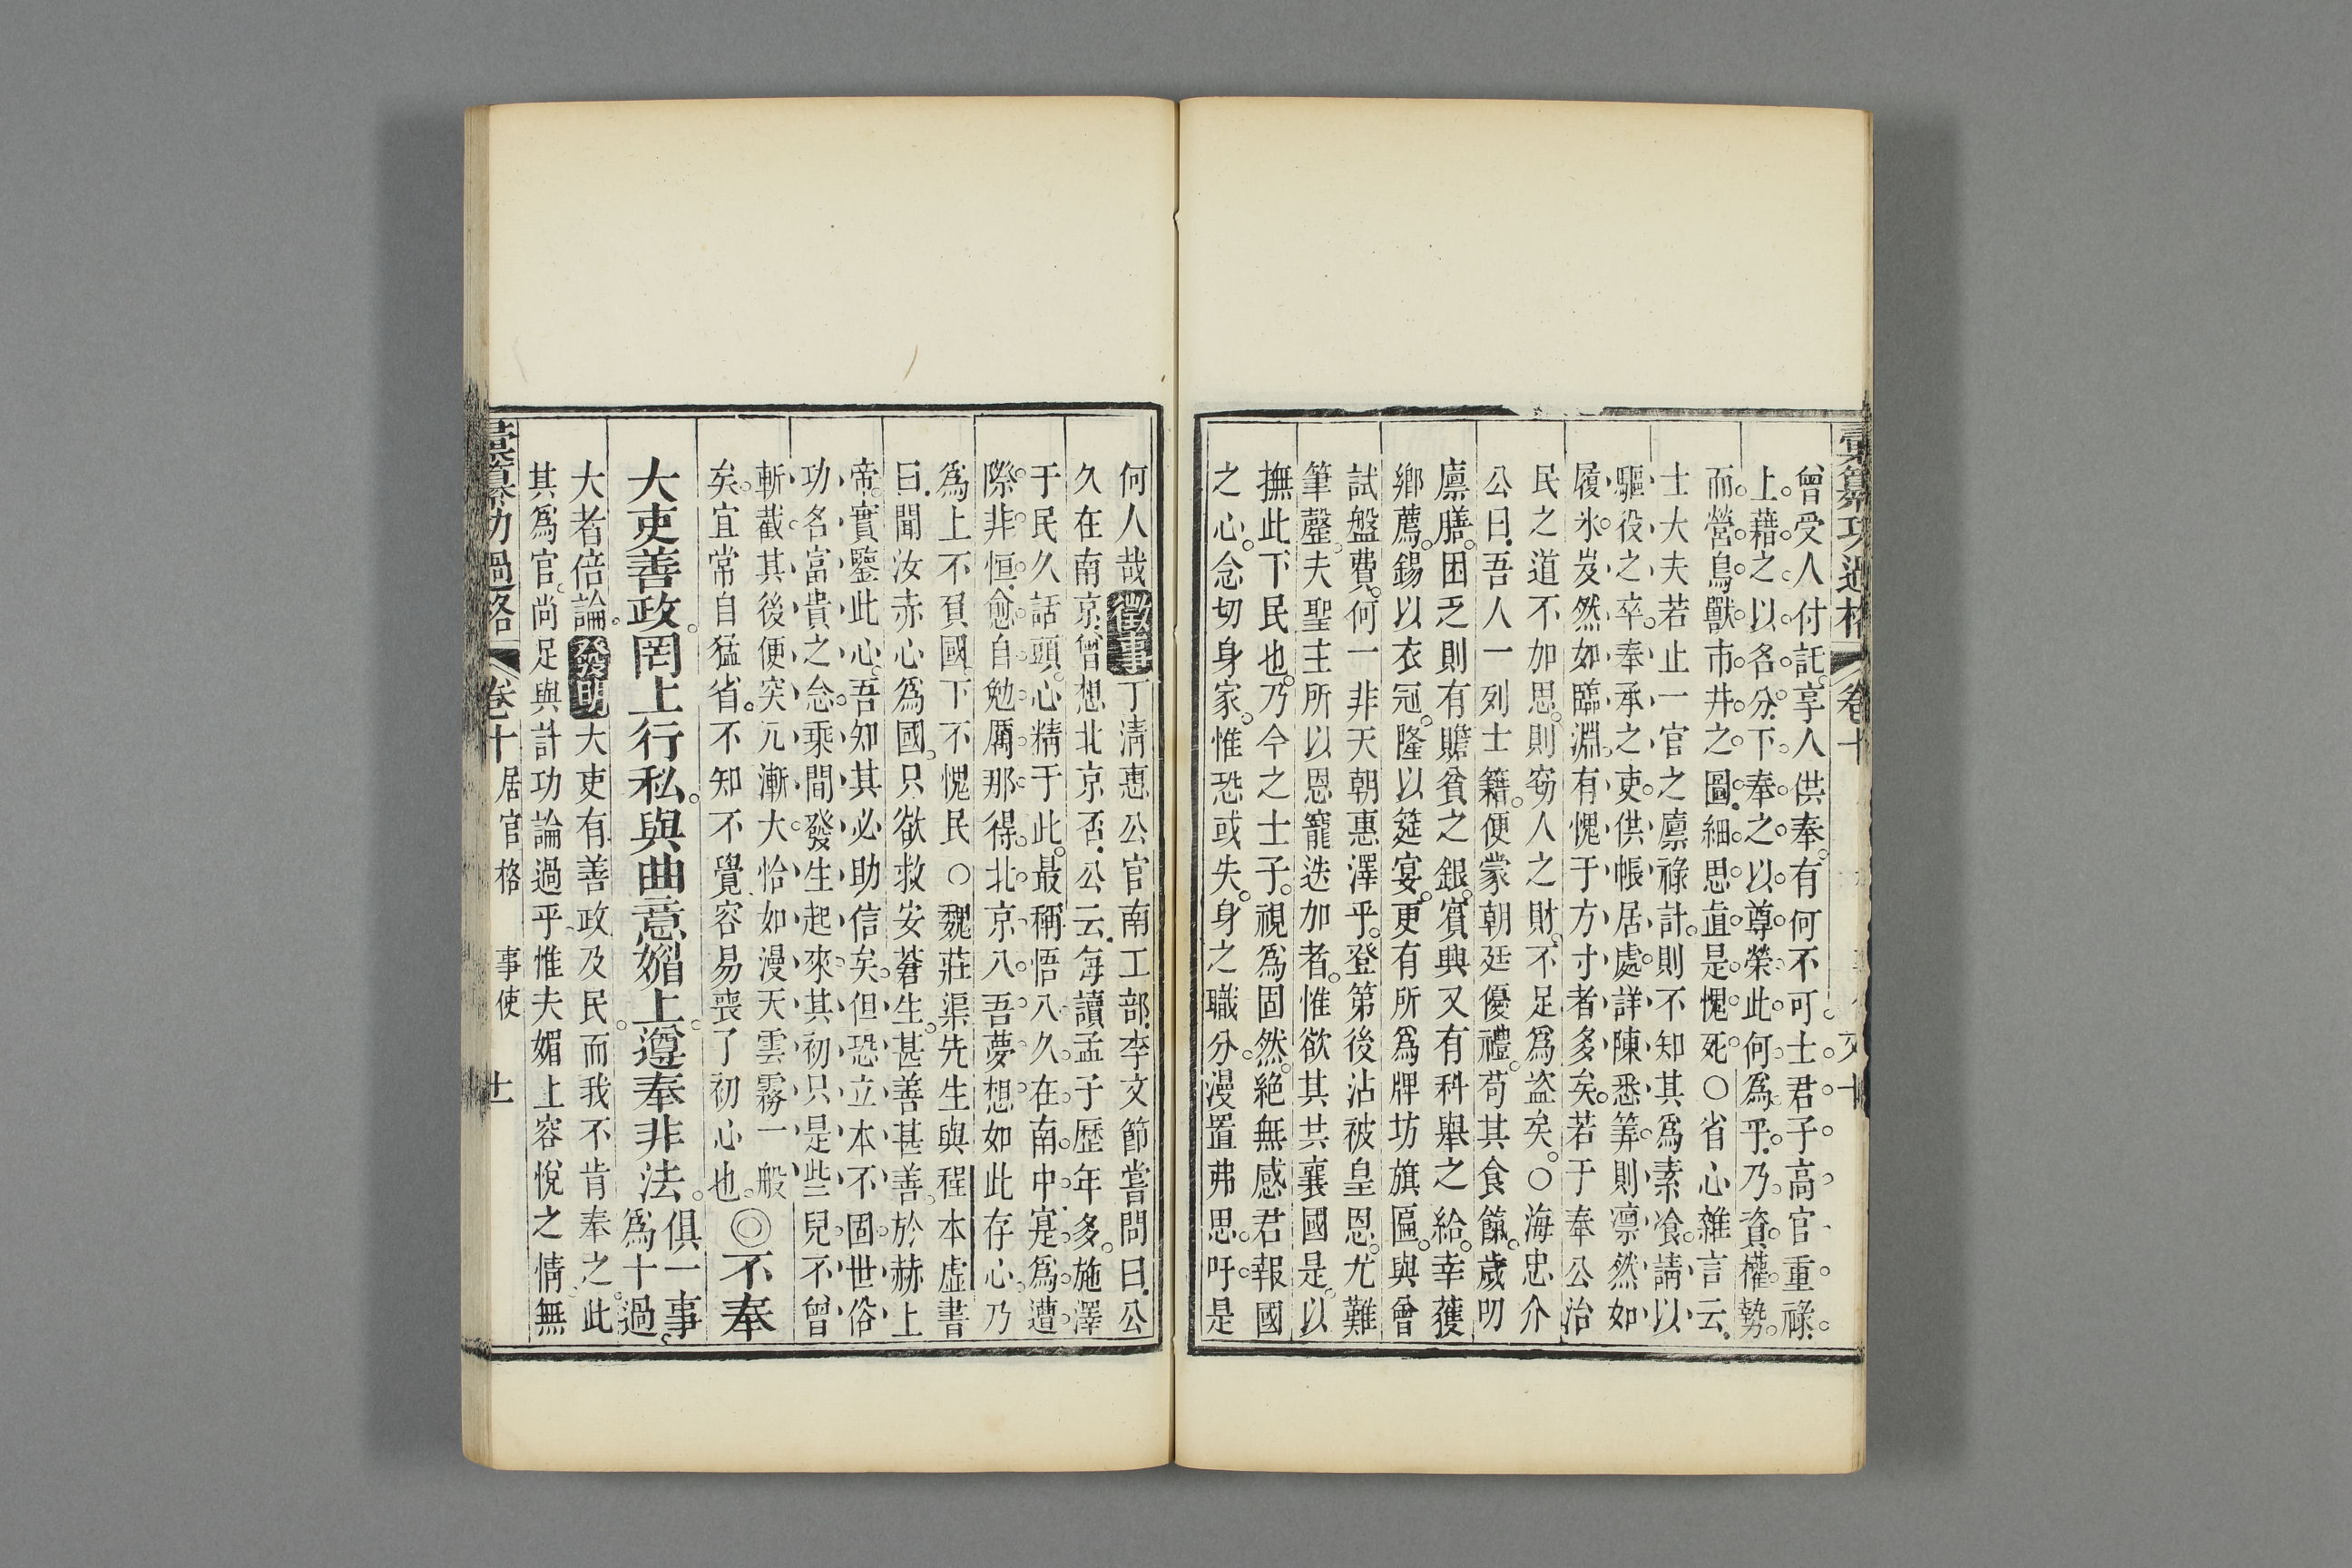 彙纂功過格 卷十
曾受人付託。享人供奉。有何不可。士君子高官重祿。
上藉之以名分。下奉之以尊榮。此何爲乎。乃資權勢。
而營鳥獸市井之圖。細思直是愧死。○省心雜言云。
士大夫若止一官之廩祿計。則不知其爲素飡。請以
驅役之卒。奉承之吏。供帳居處。詳陳悉筭。則凛然如
履氷。岌然如臨淵。有愧于方寸者多矣。若于奉公治
民之道不加思。則窃人之財。不足爲盜矣。○海忠介
公曰。吾人一列士籍。便蒙朝廷優禮。苟其食餼。歲叨
廪膳。困乏則有贍貧之銀。賓興又有科舉之給。幸獲
鄉薦。錫以衣冠。隆以筵宴。更有所爲牌坊旗匾。與曾
試盤費。何一非天朝惠澤乎。登第後沾被皇恩。尤難
筆罄。夫聖主所以恩寵迭加者。惟欲其共襄國是。以
撫此下民也。乃今之士子。視爲固然。絕無感君報國
之心。念切身家。惟恐或失。身之職分。漫置弗思。吁。是
何人哉。徵事丁淸惠公官南工部。李文節嘗問曰。公
久在南京。曾想北京否。公云。每讀孟子歷年多。施澤
于民久話頭。心精于此。最稱悟八久。在南中。寔爲遭
際。非恒。愈自勉厲。那得北京八吾夢想。如此存心。乃
爲上不負國。下不愧民。○魏莊渠先生與程本虛書
曰。聞汝赤心爲國。只欲救安蒼生。甚善甚善。於赫上
帝。實鑒此心。吾知其必助信矣。但恐立本不固。世俗
功名富貴之念。乘間發生。起來其初只是些兒。不曾
斬截。其後便突兀漸大。恰如漫天雲霧一般
矣。宜常自猛省。不知不覺。容易喪了初心也。◎不奉
大吏善政。罔上行私。與曲意媚上。遵奉非法。俱一事爲十過。
大者倍論。發明大吏有善政及民。而我不肯奉之。此
其爲官。尚足與計功論過乎。惟夫媚上容悅之情。無
彙纂功過格 卷十 居官格 事使 十一